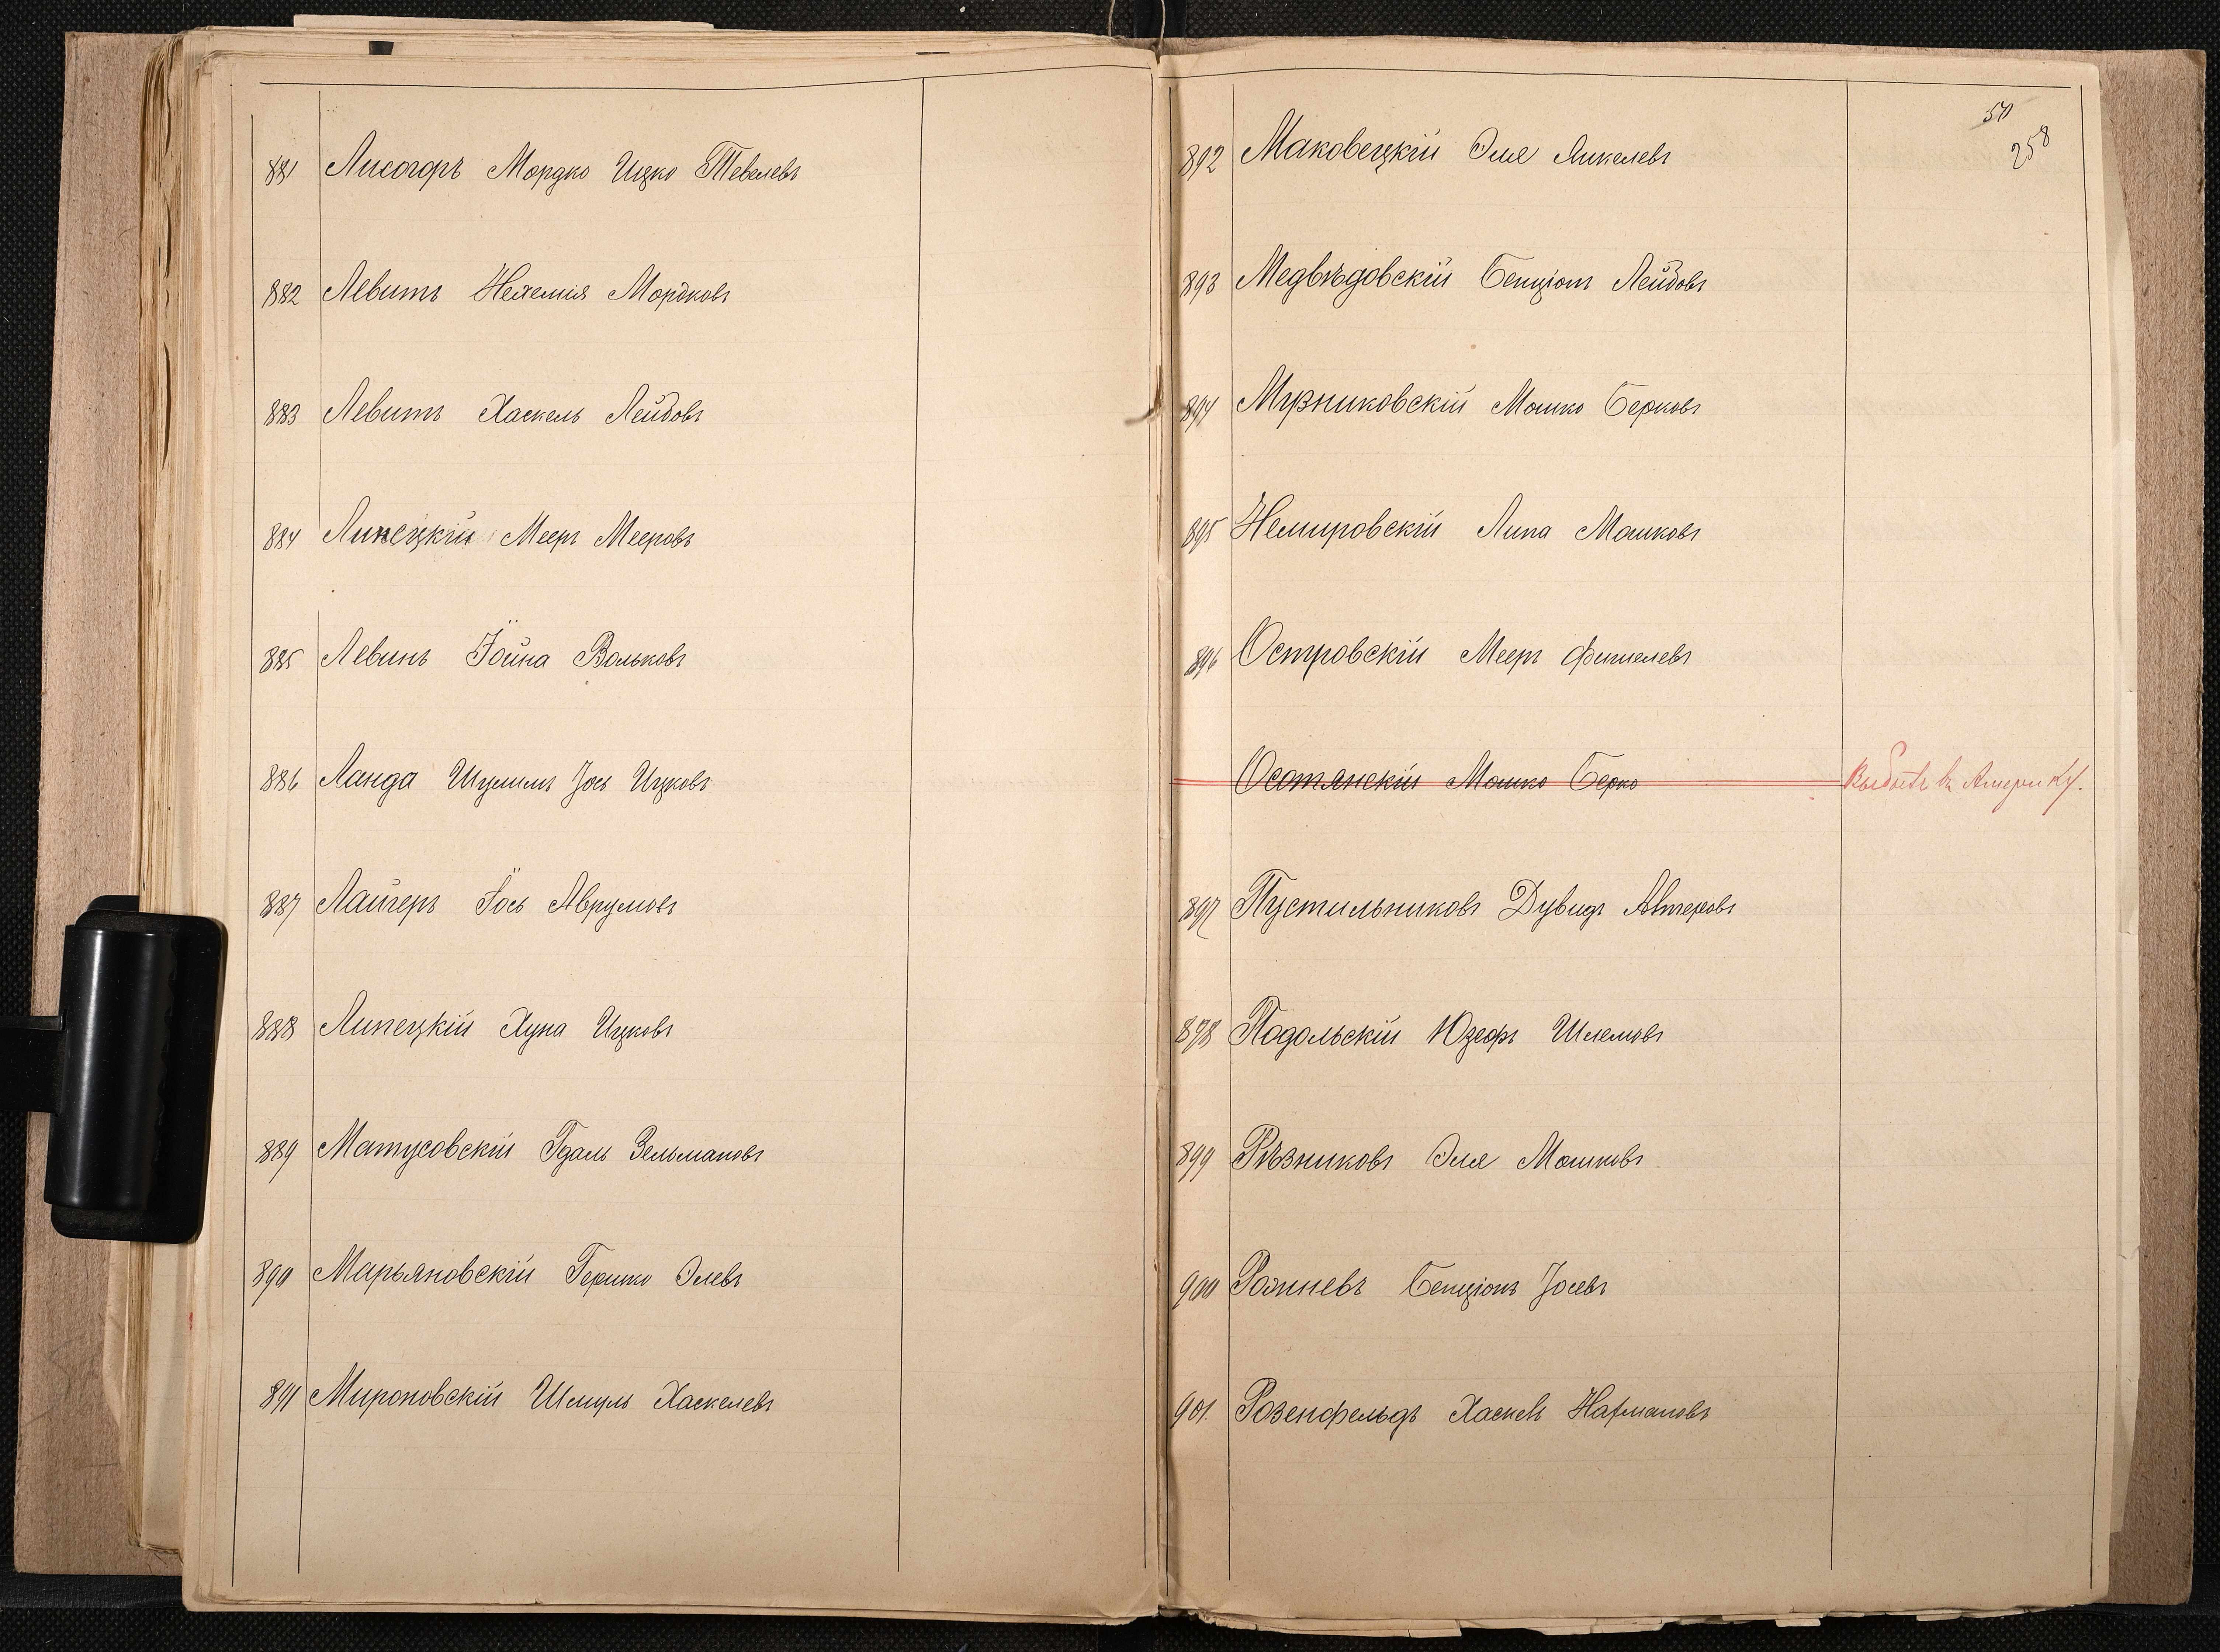 881 Лисогоръ Мордко Ицко Тевелевъ
882 Левитъ Нехемія Мордковъ
883 Левитъ Хаскель Лейбовъ
884 Линецкій Мееръ Мееровъ
885 Левинъ Іойна Вольковъ
886 Ланда Шулимъ Іось Ицковъ
887 Лайгеръ Іось Аврумовъ
888 Липецкій Хуна Ицковъ
889 Матусовскій Гдаль Зельмановъ
890 Марьяновскій Гершко Элевъ
891 Мироновскій Шмуль Хаскелевъ
50
258
892 Маковецкій Эля Янкелевъ
893 Медвѣдовскій Бенціонъ Лейбовъ
894 Мирниковскій Мошко Берковъ
895 Немировскій Липа Мошковъ
896 Островскій Мееръ Фишелевъ
Осотянскій Мошко Берко Выбылъ въ Америку.
897 Пустильниковъ Дувидъ Алтеровъ
898 Подольскій Юзефъ Шлемовъ
899 Рѣзниковъ Эля Мошковъ
900 Рожневъ Бенціонъ Іосевъ
901. Розенфельдъ Хаскель Нахмановъ